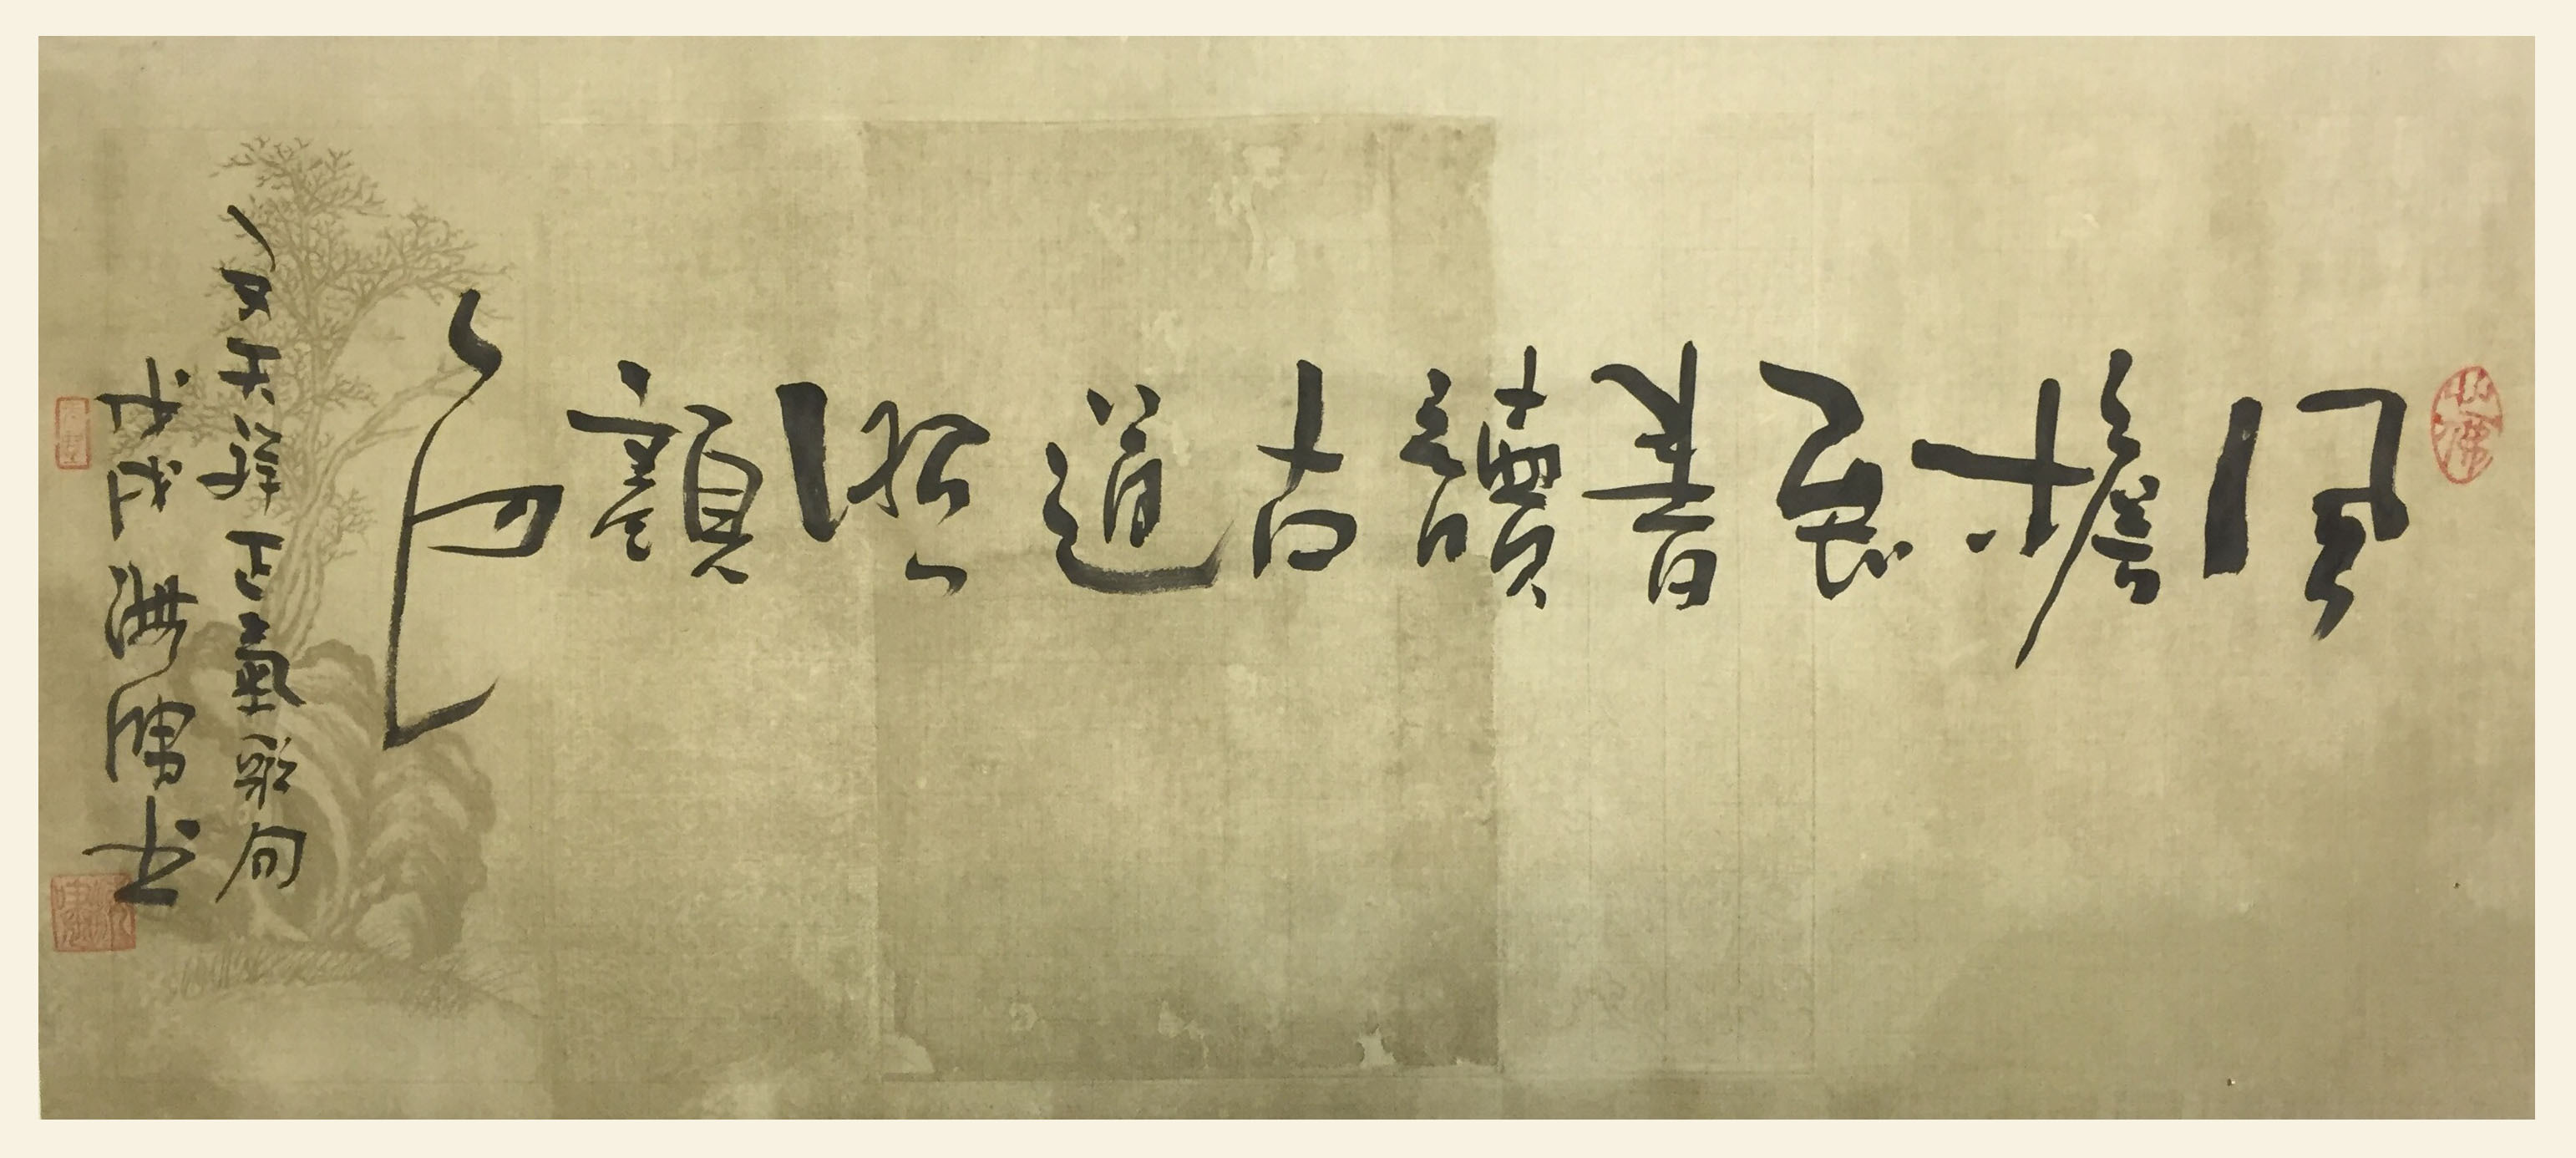 風檐展書讀古道照顏色
文天祥正氣歌句
戊戌
書